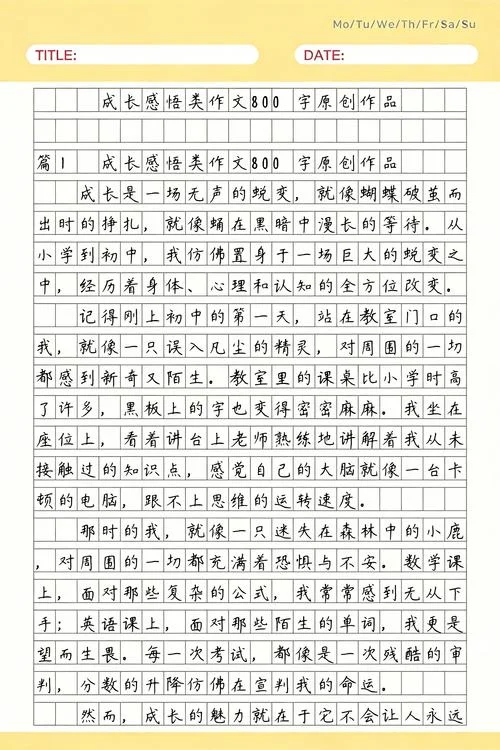 Mo/Tu/We/Th/Fr/Sa/Su
TITLE:
DATE:
成长感悟类作文800 字原创作品
篇1 成长感悟类作文800 字原创作品
成长是一场无声的蜕变，就像蝴蝶破茧而
出时的挣扎，就像蛹在黑暗中漫长的等待。从
小学到初中，我仿佛置身于一场巨大的蜕变之
中，经历着身体、心理和认知的全方位改变。
记得刚上初中的第一天，站在教室门口的
我，就像一只误入凡尘的精灵，对周围的一切
都感到新奇又陌生。教室里的课桌比小学时高
了许多，黑板上的字也变得密密麻麻。我坐在
座位上，看着讲台上老师熟练地讲解着我从未
接触过的知识点，感觉自己的大脑就像一台卡
顿的电脑，跟不上思维的运转速度。
那时的我，就像一只迷失在森林中的小鹿
，对周围的一切都充满着恐惧与不安。数学课
上，面对那些复杂的公式，我常常感到无从下
手；英语课上，面对那些陌生的单词，我更是
望而生畏。每一次考试，都像是一次残酷的审
判，分数的升降仿佛在宣判我的命运。
然而，成长的魅力就在于它不会让人永远